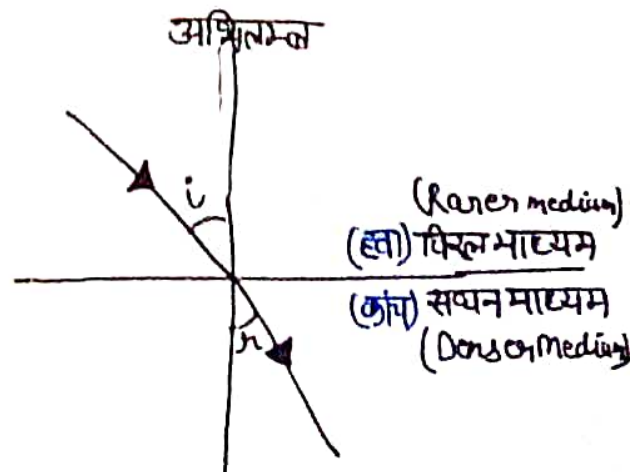 अभिलम्ब
i
(Rarer medium)
(हवा) विरल माध्यम
(कांच) सघन माध्यम
r
(Denser Medium)